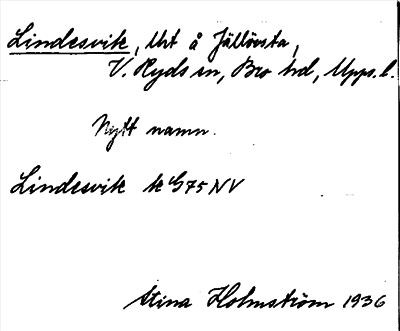 Lindesvik, lht å Jällövsta,
V. Ryds sn, Bro hd, Upps. l.
Nytt namn.
Lindesvik ek G75 NV
Stina Holmström 1936